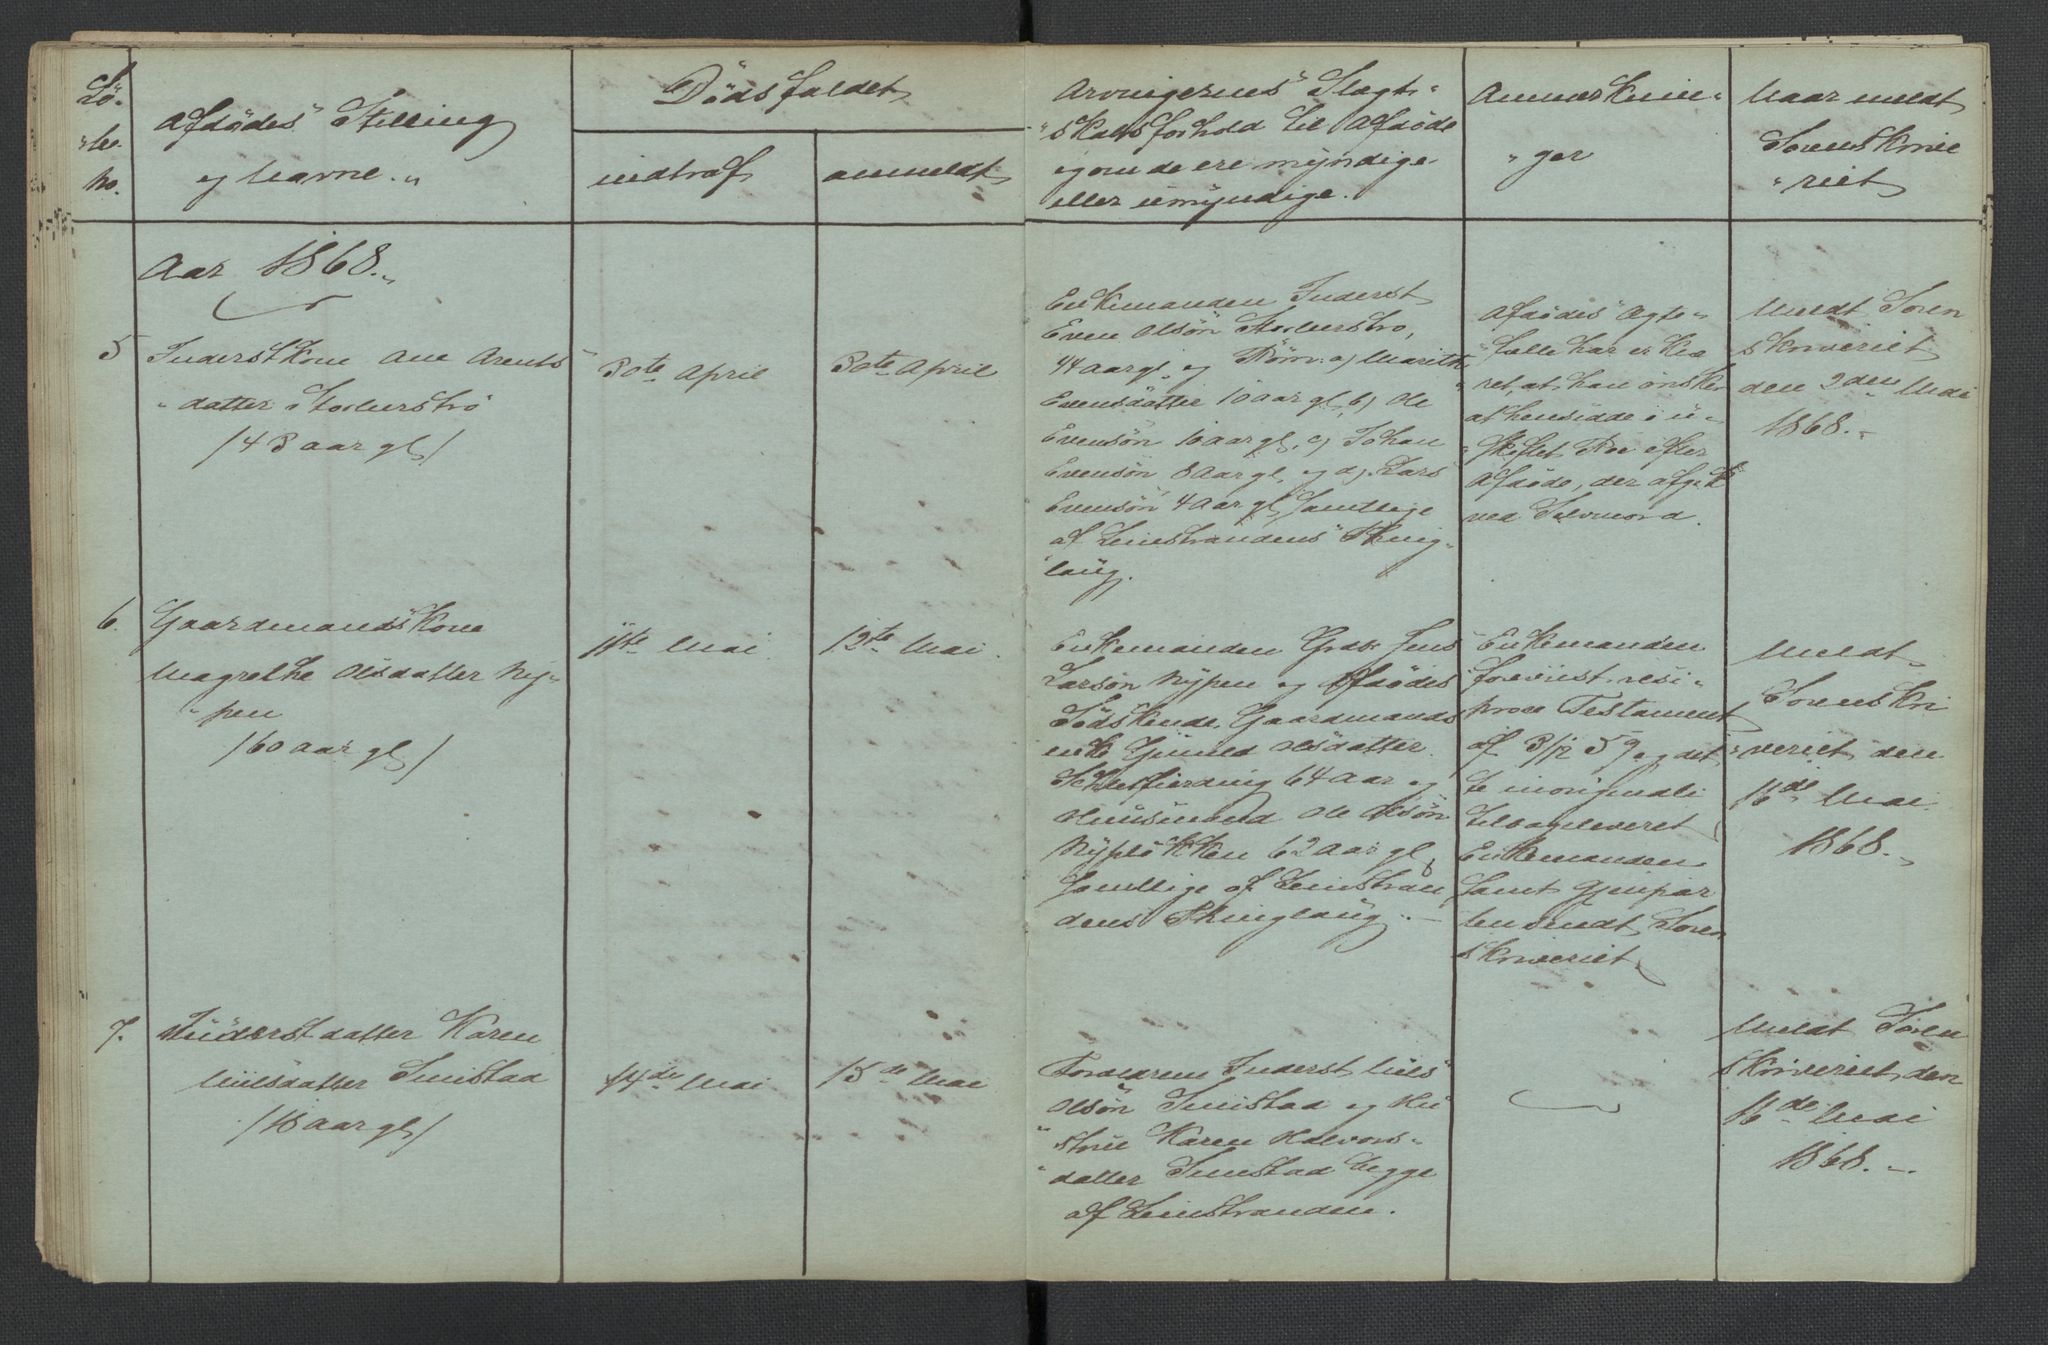 Lö-
be
No.
Afdødes Stilling
og Navne.
Dødsfaldet
indtraf
anmeldt
Arvingernes Slægt-
skabsforhold til Afdøde
og om de ere myndige
eller umyndige.
Anmærknin-
ger
Naar meldt
Sorenskrive
riet
Aar 1868.
5
Inderstkone Ane Arents
datter Stoderströ
/43 aar gl/
30te April
30te April
Enkemanden Inderst
Even Olsön
44 aar gl. og Börn: a) Marith
Evensdatter 10 aar gl, b) Ole
Evensön 10 aar gl, c) Johan
Evensön 8 aar gl, og d) Lars
Evensön 4 aar gl, samtlige
af Leinstrandens Thing-
laug.
Afdødes Ægte-
fælle har erklæ
ret, at han önsker
at hensidde i u-
skiftet Boe efter
Afdöde, der afgik
ved Selvmord.
Meldt Soren
skriveriet
den 2den Mai
1868.
6.
Gaardmandskone
Magrethe Olsdatter Ny-
pen
/60 aar gl/
11te Mai
12te Mai.
Enkemanden Grdbr Jens
Larsön Nypen og Afdødes
Södskende, Gaardmands
enke Gunild Olsdatter
64 Aar og
Huusmand Ole Olsön
Nyplökken 62 aar gl,
samtlige af Leinstran
dens Thinglaug.
Enkemanden
foreviist resi-
proce Testament
af 3/12 59 og det-
te in originali
tilbageleveret
Enkemanden
samt Gjenpar
ten sendt Soren
skriveriet
Meldt
Sorenskri
veriet den
16de Mai
1868.
7.
Inderstdatter Karen
Nilsdatter Smistad
/18 aar gl/
14de Mai
15de Mai
Forældrene Inderst Nils
Olsön Smistad og Hu
strue Karen Halvors-
datter Smistad begge
af Leinstranden.
Meldt Soren
skriveriet, den
16de Mai
1868.